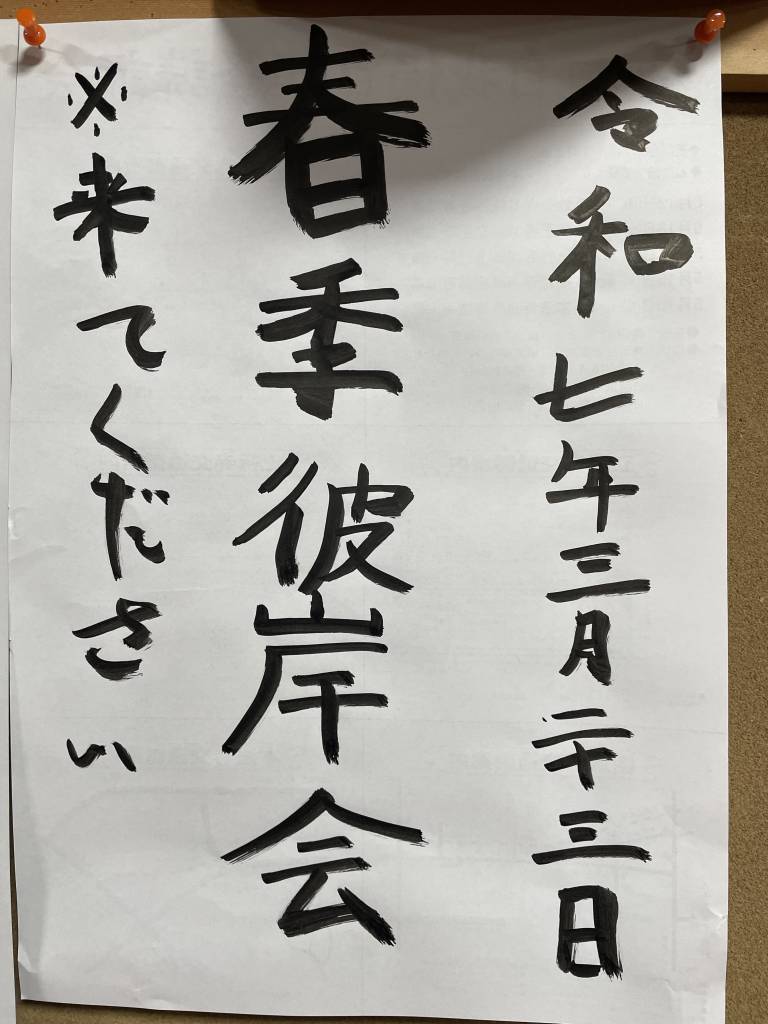 令和七年三月二十三日
春季彼岸会
※来てください